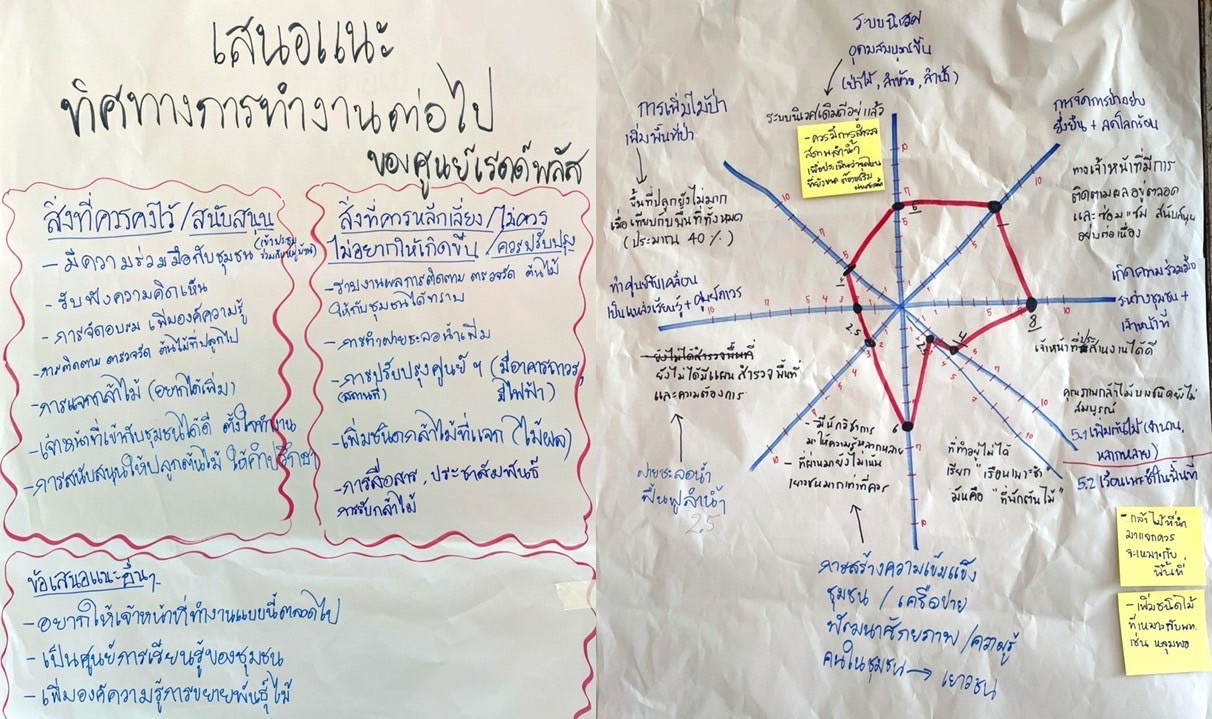 เสนอแนะ
ทิศทางการทำงานต่อไป
ของศูนย์เรดด์พลัส
สิ่งที่ควรคงไว้/สนับสนุน
- มีความร่วมมือกับชุมชน (เข้าประชุม
ร่วมกับหมู่บ้าน)
- รับฟังความคิดเห็น
- การจัดอบรม เพิ่มองค์ความรู้
- การติดตาม ตรวจวัด ต้นไม้ที่ปลูกไป
- การแจกกล้าไม้ (อยากได้เพิ่ม)
- เจ้าหน้าที่เข้ากับชุมชนได้ดี ตั้งใจทำงาน
- การสนับสนุนให้ปลูกต้นไม้ ให้คำปรึกษา
สิ่งที่ควรหลีกเลี่ยง/ไม่ควร
ไม่อยากให้เกิดขึ้น / ควรปรับปรุง
- รายงานผลการติดตาม ตรวจวัด ต้นไม้
ให้กับชุมชนได้ทราบ
- การทำฝายชะลอน้ำเพิ่ม
- การปรับปรุงศูนย์ฯ (มีอาคารถาวร,
(สถานที่) มีไฟฟ้า)
- เพิ่มชนิดกล้าไม้ที่แจก (ไม้ผล)
- การสื่อสาร, ประชาสัมพันธ์
การรับกล้าไม้
ข้อเสนอแนะอื่นๆ
- อยากให้เจ้าหน้าที่ทำงานแบบนี้ตลอดไป
- เป็นศูนย์การเรียนรู้ของชุมชน
- เพิ่มองค์ความรู้การขยายพันธุ์ไม้
ระบบนิเวศ
อุดมสมบูรณ์ขึ้น
(ป่าไม้, ลำห้วย, ลำน้ำ)
ระบบนิเวศเดิมดีอยู่แล้ว
- ควรมีการสำรวจ
สภาพลำน้ำ
การเพิ่มไม้ป่า
เพิ่มพื้นที่ป่า
พื้นที่ปลูกยังไม่มาก
เมื่อเทียบกับพื้นที่ทั้งหมด
(ประมาณ 40%)
การจัดการป่าอย่าง
ยั่งยืน + ลดโลกร้อน
ทางเจ้าหน้าที่มีการ
ติดตามผลอยู่ตลอด
และซ่อมแซม สนับสนุน
อย่างต่อเนื่อง
ทำศูนย์ขับเคลื่อน
เป็นแหล่งเรียนรู้ + ศูนย์ถาวร
เกิดความร่วมมือ
ระหว่างชุมชน +
เจ้าหน้าที่
8
เจ้าหน้าที่ประสานงานได้ดี
- ยังไม่ได้สำรวจพื้นที่
ยังไม่ได้มีแผนสำรวจพื้นที่
และความต้องการ
ฝายชะลอน้ำ
ฟื้นฟูลำน้ำ
2.5
- มีนักวิชาการ
มาให้ความรู้หลากหลาย
- ที่ผ่านมายังไม่เน้น
เยาวชนมากเท่าที่ควร
ที่ทำอยู่ไม่ได้
เรียก "เรือนเพาะชำ"
มันคือ "ที่พักต้นไม้"
คุณภาพกล้าไม้บางชนิดยังไม่
สมบูรณ์
5.1 เพิ่มกล้าไม้ (จำนวน,
หลากหลาย)
5.2 เรือนเพาะชำในพื้นที่
- กล้าไม้ที่นำ
มาแจกควร
จะเหมาะกับ
พื้นที่
- เพิ่มชนิดไม้
ที่เหมาะกับพท.
เช่น หลุมพอ
การสร้างความเข้มแข็ง
ชุมชน / เครือข่าย
พัฒนาศักยภาพ / ความรู้
คนในชุมชน → เยาวชน